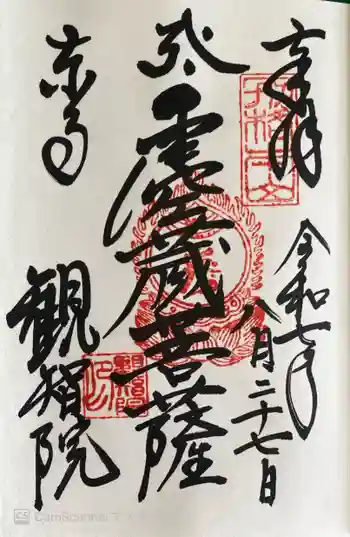 奉拝
令和七年
八月二十七日
虚空蔵菩薩
東寺
観智院
CS CamScanner